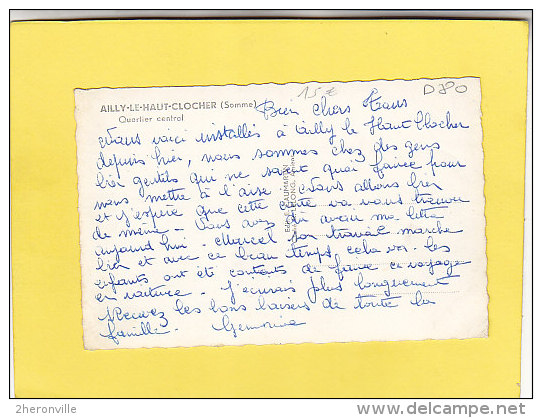 15€
D80
AILLY-LE-HAUT-CLOCHER (Somme)
Quartier central
Bien chers Tous
Nous voici installés à Ailly le Haut Clocher
depuis hier, nous sommes chez des gens
bien gentils qui ne savent quoi faire pour
nous mettre à l'aise. Nous allons bien
et j'espère que cette carte va vous trouver
de même. Vous avez dû avoir ma lettre
aujourd'hui. Marcel son travail marche
bien et avec ce beau temps cela va. les
enfants ont été contents de faire ce voyage
en voiture. J'écrirais plus longuement
Recevez les bons baisers de toute la
famille.
2heronville
www.delcampe.net